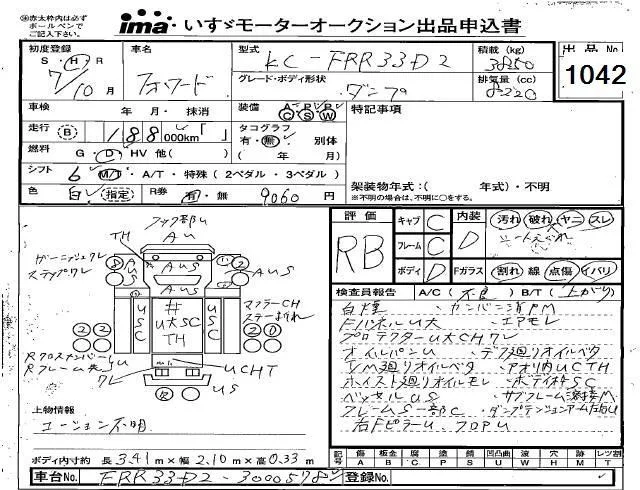 ※赤太枠内は必ず
ボールペンで
ご記入下さい。
ima いすゞモーターオークション出品申込書
初度登録 S・H・R 7/10月
車名 フォワード
型式 KC-FRR33D2
グレード・ボディ形状 ダンプ
積載(kg) 3850
排気量(cc) 8220
出品No. 1042
車検 年 月・抹消
装備 A C P S P W
特記事項
走行 B 188,000km「 」
タコグラフ 有・無 別体
( 年 月)
燃料 G・D・HV 他( )
シフト 6 M/T・A/T・特殊(2ペダル・3ペダル)
色 白 指定 R券 有・無 9060円
架装物年式:( 年式)・不明
※不明の場合は、不明に○をする。
評価 RB
キャブ C
フレーム C
ボディ D
内装 D
Fガラス
汚れ 破れ ヤニ スレ
割れ 線 点傷 イバリ
フック部U
TH AU
ガーニッシュワレ
ステップワレ
AUS AUS AUS
USC # U大SC TH USC
マフラーCH
ステー折れ
RクロスメンバーU
Rフレーム先U
ワレ
UCHT
US
上物情報
コーション不明
検査員報告 A/C(不良) B/T(上がり)
白煙
FパネルU大 エアモレ
プロテクターU大CHワレ
オイルパンU デフ廻りオイルベタ
T/M廻りオイルベタ アオリ内UCTH
ホイスト廻りオイルモレ ボディ枠SC
ベッセルUS サブフレーム溶接M
フレームS一部C ダンプテンションアーム右内U
右FピラーU フロアU
ボディ内寸約 長3.41m×幅2.10m×高0.33m
記号 傷A 板金B 腐C 塗P 錆S 凹凸曲U 波W 穴H 跡M レツ割T
車台No. FRR33D2-3000578
登録No.